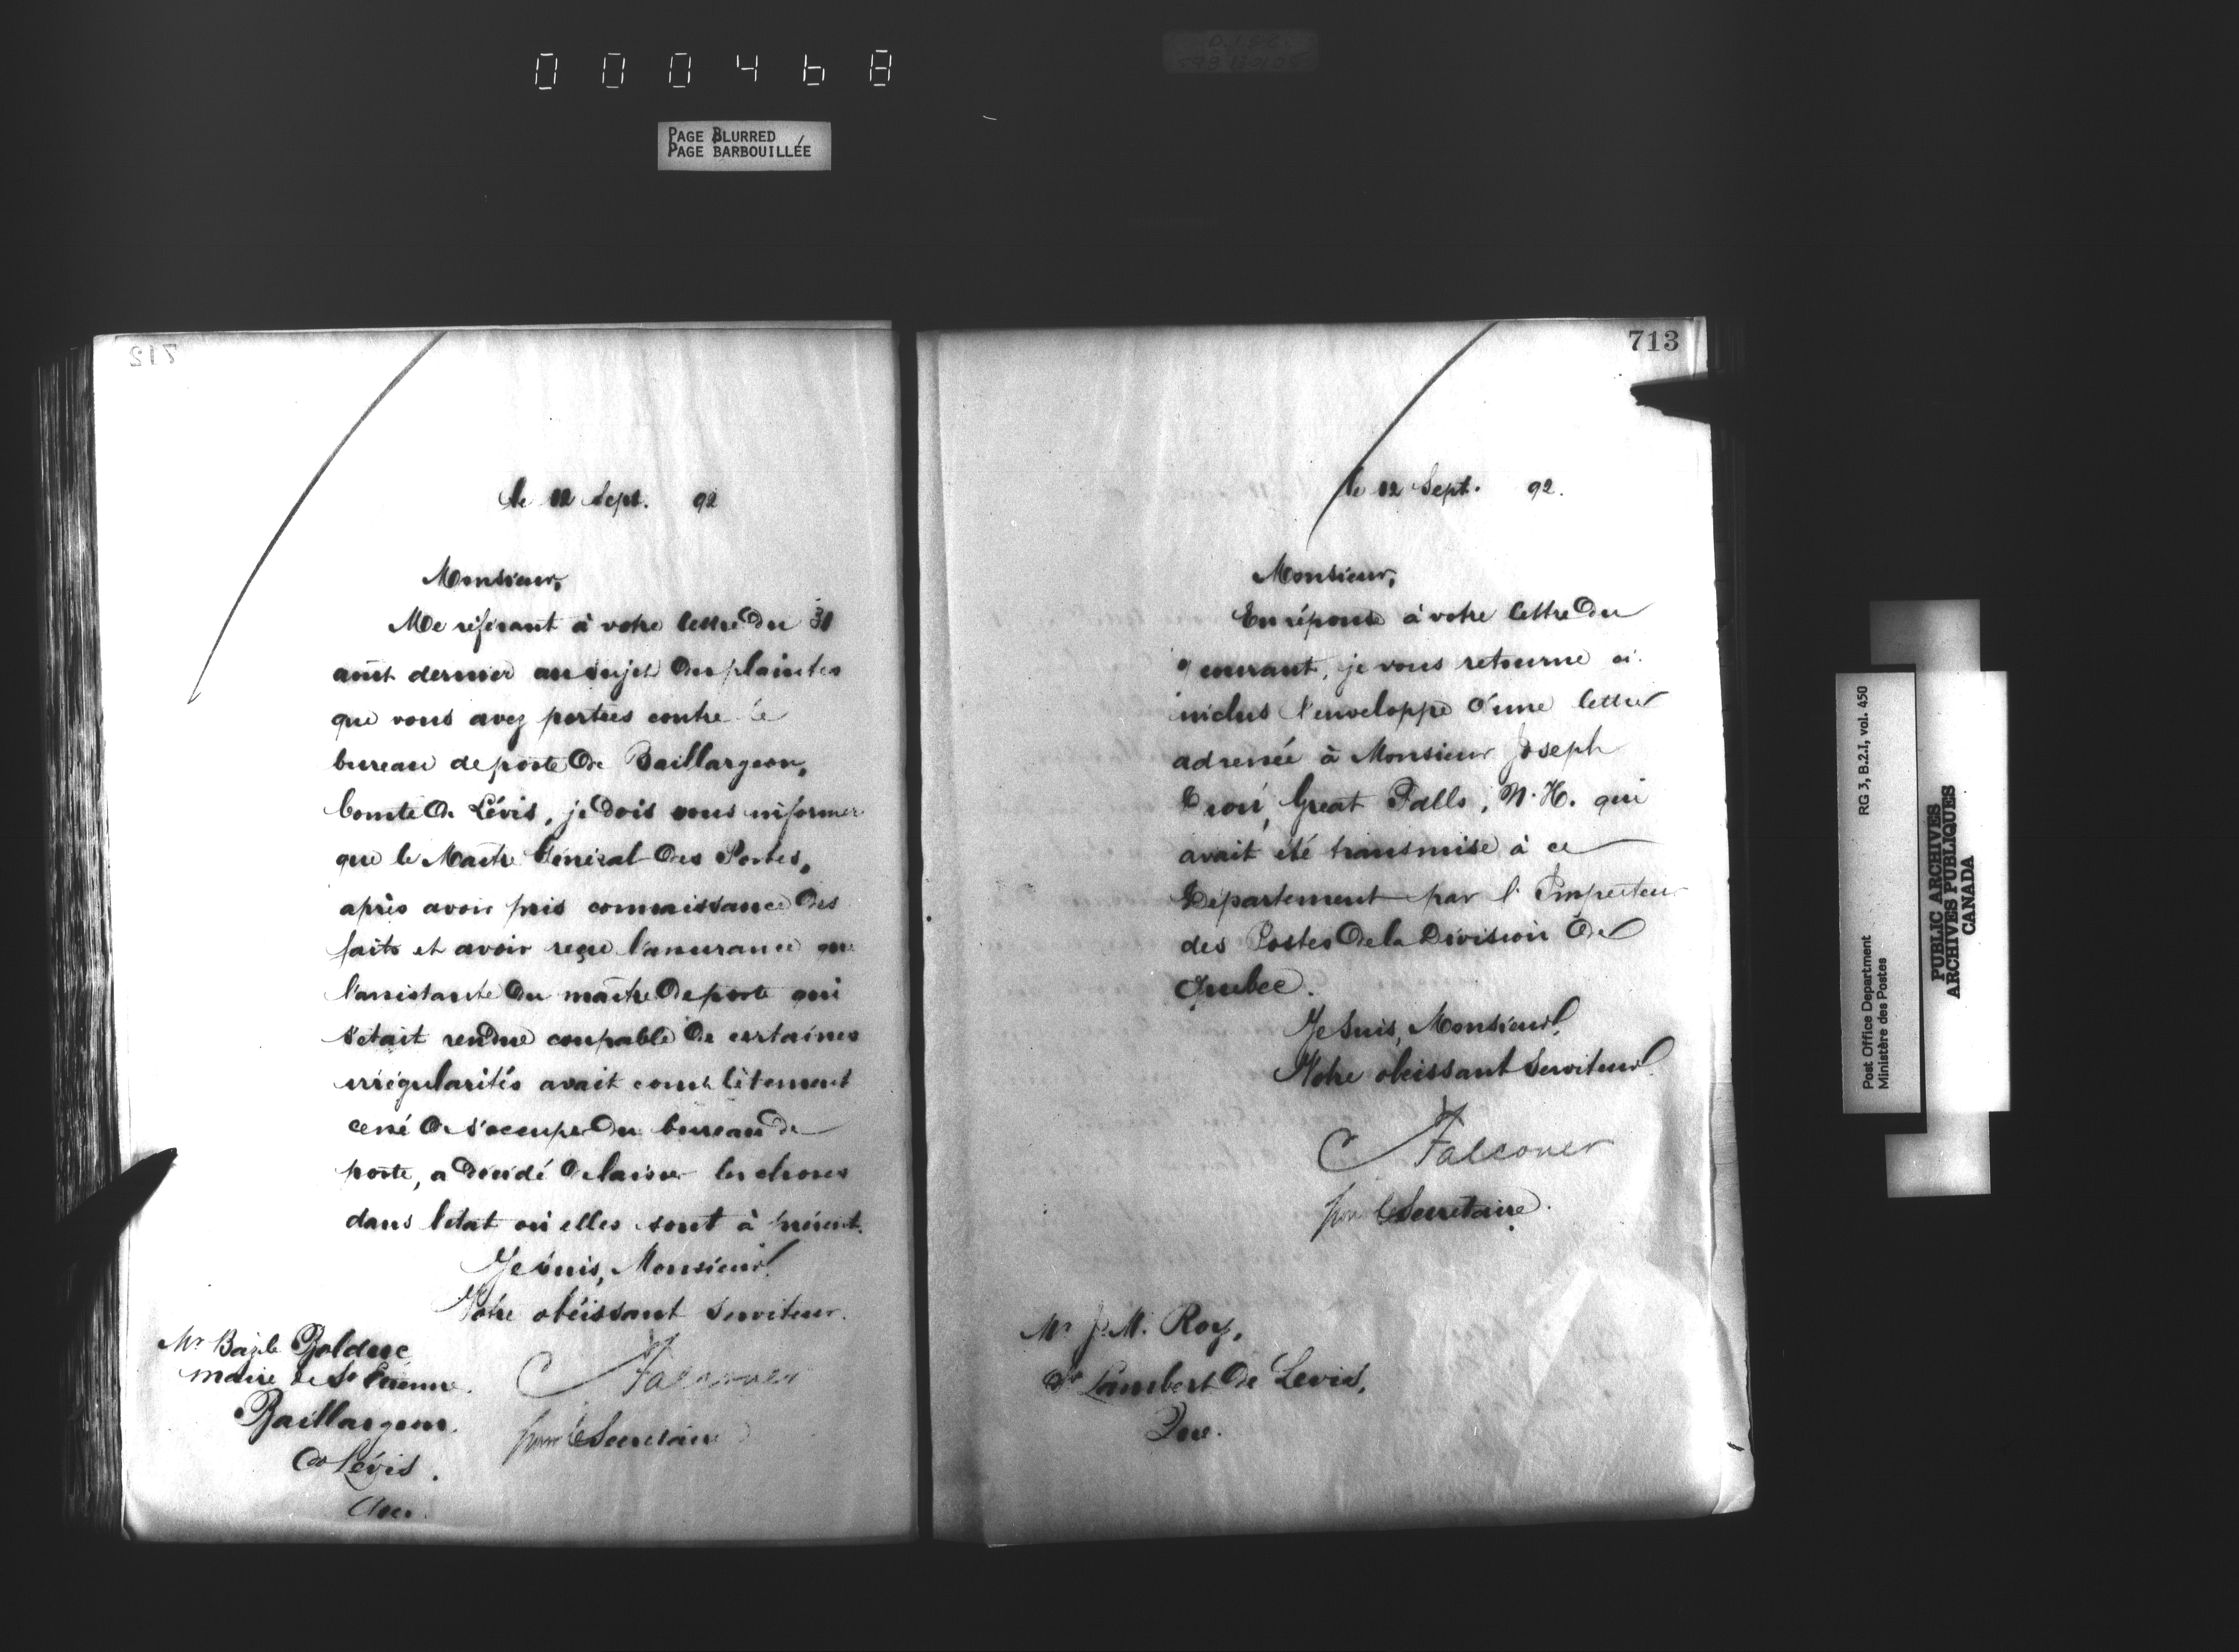 000468
PAGE BLURRED
PAGE BARBOUILLÉE
712
le 12 Sept. 92
Monsieur,
Me référant à votre lettre du 31
août dernier au sujet des plaintes
que vous avez portées contre le
bureau de poste de Baillargeon,
Comté de Lévis, je dois vous informer
que le Maître Général des Postes,
après avoir pris connaissance des
faits et avoir reçu l'assurance que
l'assistante du maître de poste qui
s'était rendue coupable de certaines
irrégularités avait complètement
cessé de s'occuper du bureau de
poste, a décidé de laisser les choses
dans l'état où elles sont à présent.
Je suis, Monsieur,
Votre obéissant Serviteur.
Mr Bazile Bolduc
maire de St Etienne.
Baillargeon.
Co Lévis.
Que.
C Falconer
pour le Secrétaire
713
le 12 Sept. 92.
Monsieur,
En réponse à votre lettre du
courant, je vous retourne ci-
inclus l'enveloppe d'une lettre
adressée à Monsieur Joseph
Great Falls, N.H. qui
avait été transmise à ce
Département par l'Inspecteur
des Postes de la Division de
Quebec.
Je suis, Monsieur,
Votre obeissant Serviteur.
C Falconer
pour le Secretaire.
Mr J. M. Roy,
St Lambert de Levis,
Que.
Post Office Department RG 3, B.2.I, vol. 450
Ministère des Postes
PUBLIC ARCHIVES
ARCHIVES PUBLIQUES
CANADA